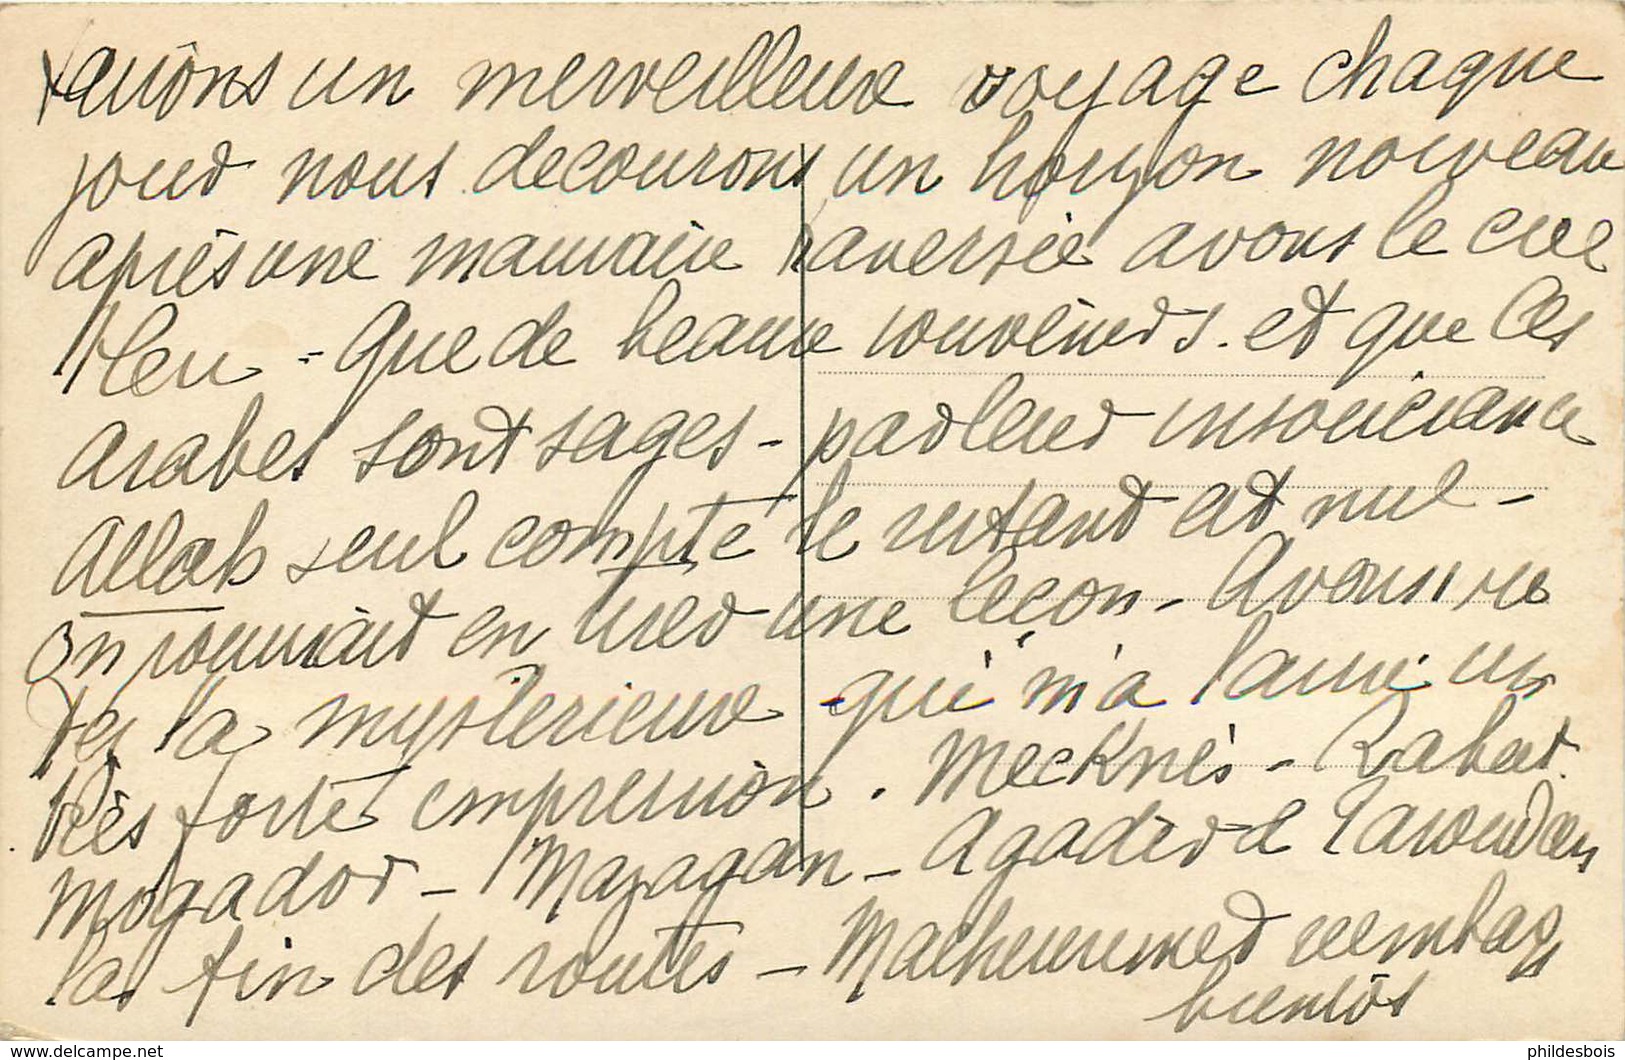 faisons un merveilleux voyage chaque
jour nous decouvrons un horizon nouveau
après une mauvaise traversée avons le ciel
bleu - Que de beaux souvenirs. et que les
arabes sont sages - par leur insouciance
Allah seul compte le restant est nul -
On pourrait en tirer une leçon - Avons vu
Fez la mysterieuse qui m'a laissé une
très forte impression. Mecknès - Rabat
Mogador - Mazagan - Agadir et Taroudan
la fin des routes - Malheureusement rembarq
bientôt
© delcampe.net
phildesbois